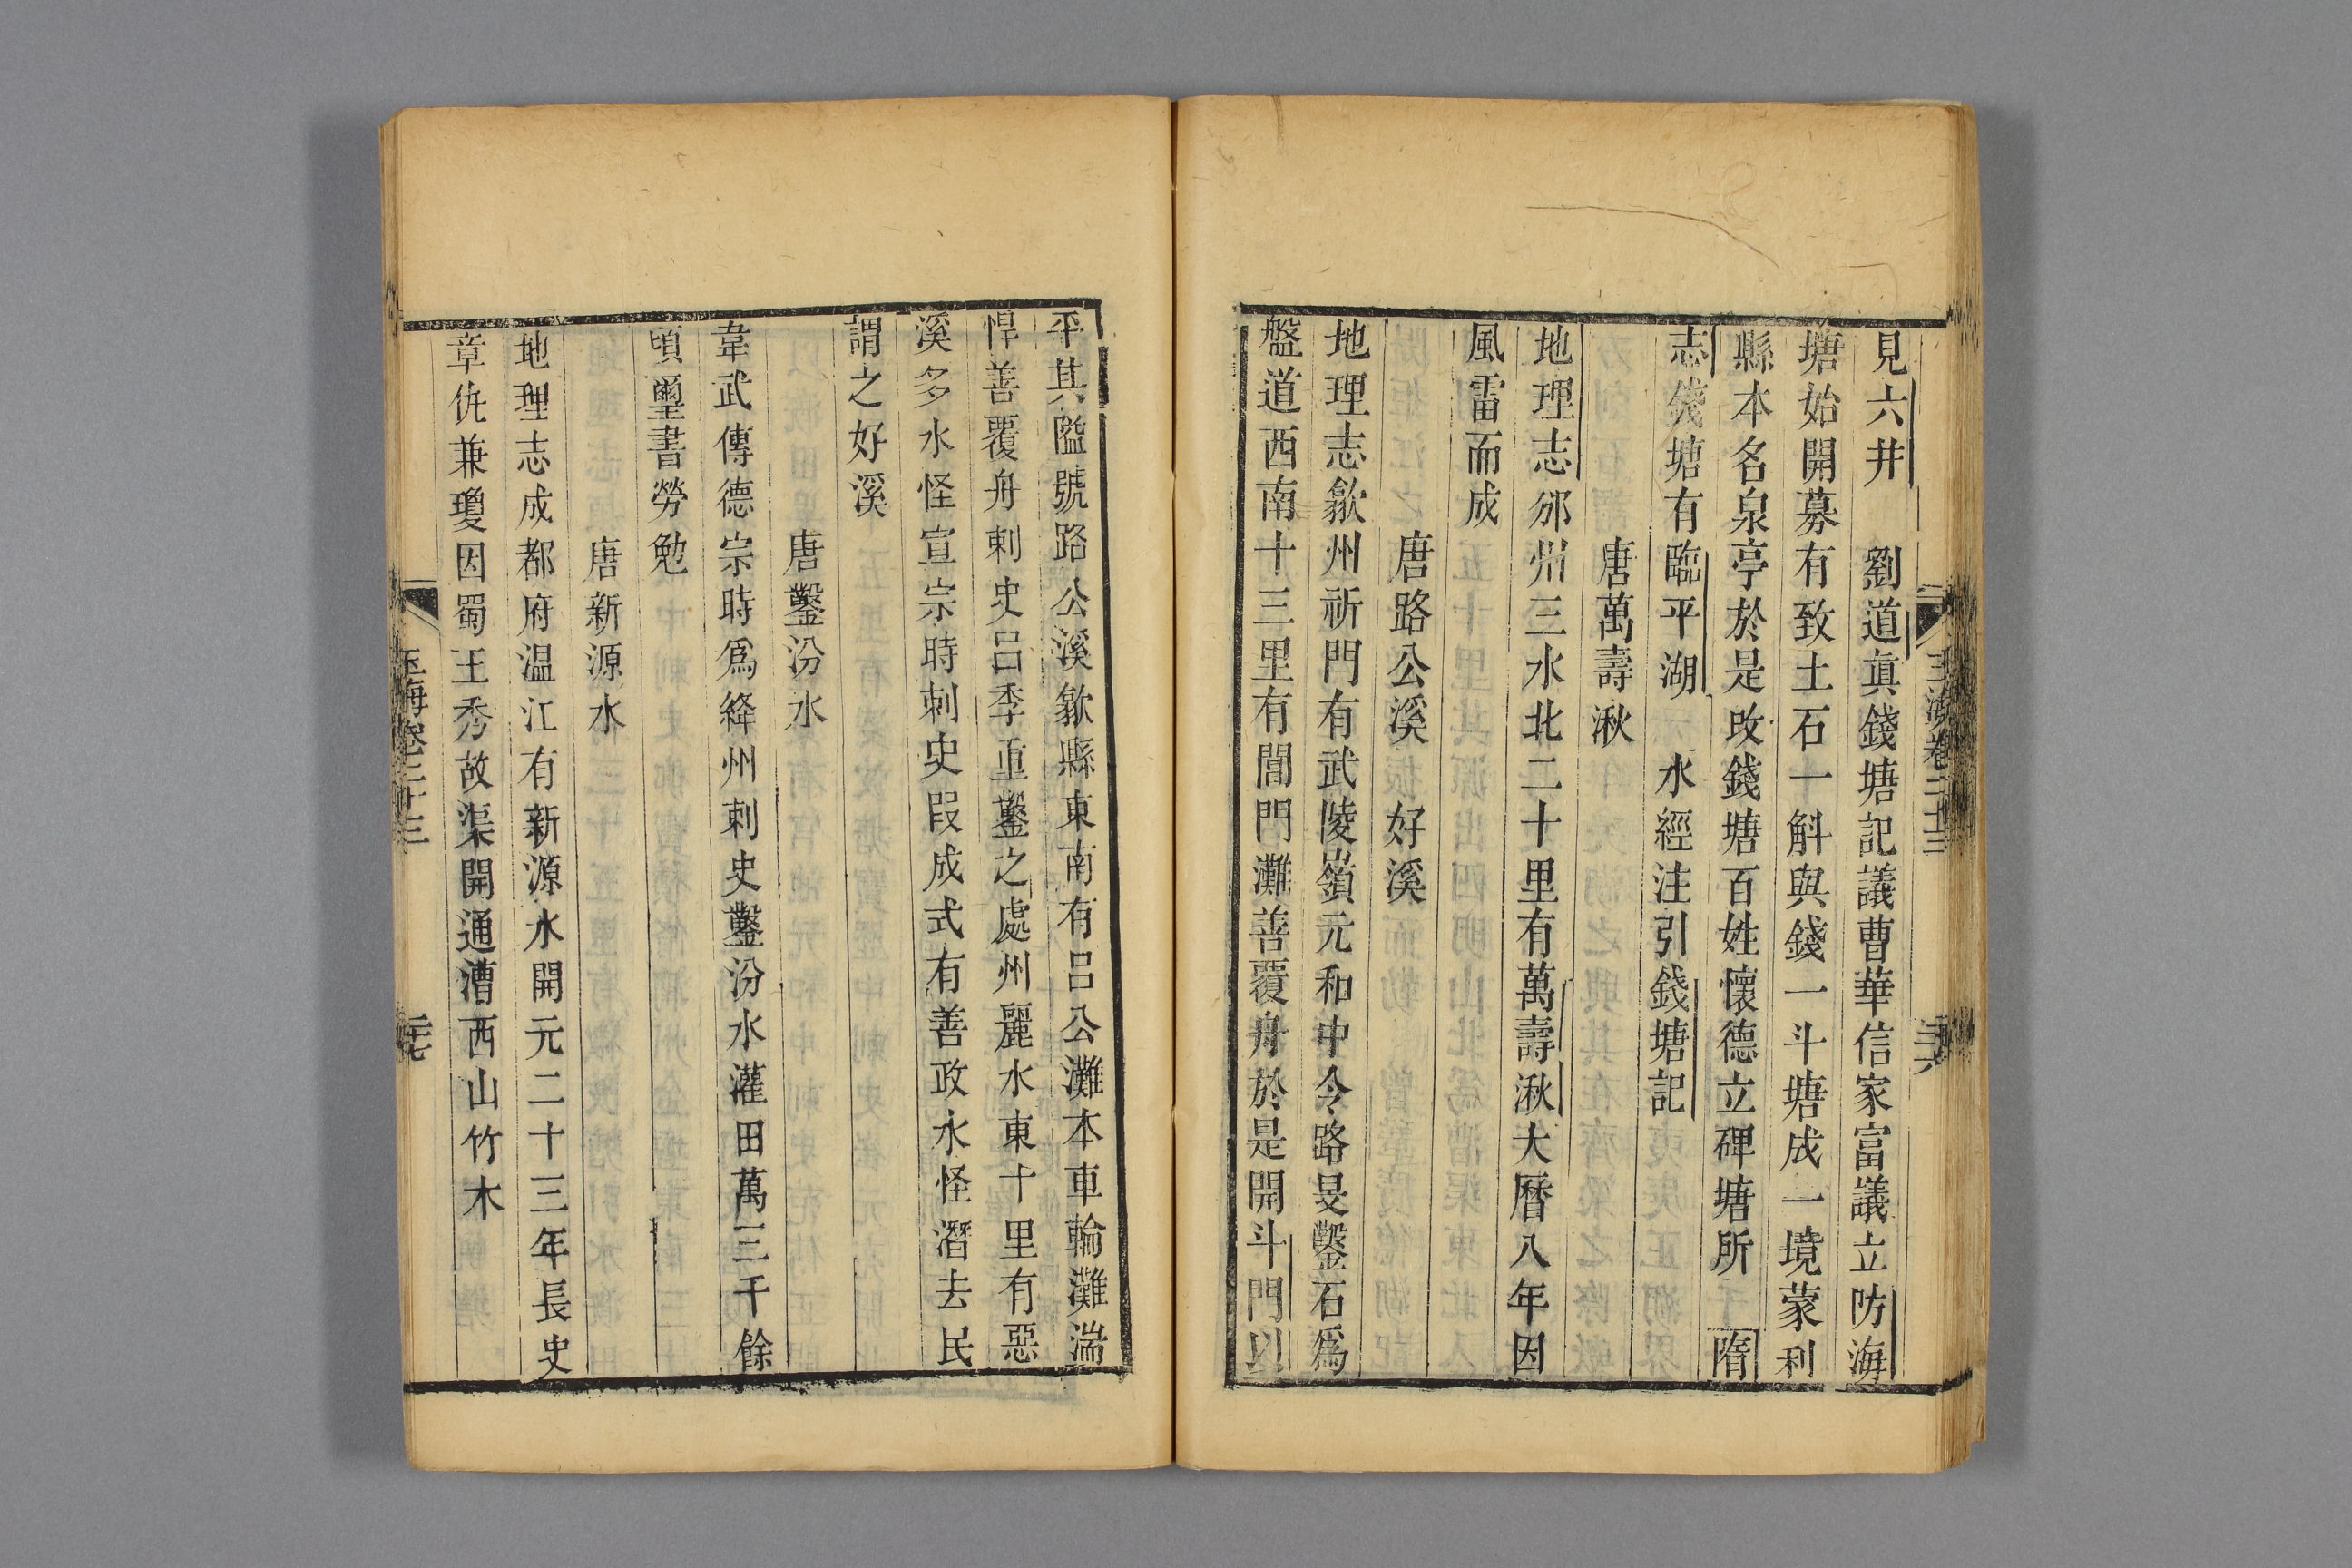 玉海卷二十三
二十六
見六井　劉道眞錢塘記議曹華信家富議立防海
塘始開募有致土石一斛與錢一斗塘成一境蒙利
縣本名泉亭於是改錢塘百姓懷德立碑塘所　隋
志錢塘有臨平湖　水經注引錢塘記
唐萬壽湫
地理志邠州三水北二十里有萬壽湫大曆八年因
風雷而成
唐路公溪　好溪
地理志歙州祈門有武陵嶺元和中令路旻鑿石爲
盤道西南十三里有閶門灘善覆舟於是開斗門以
平其隘號路公溪歙縣東南有呂公灘本車輪灘湍
悍善覆舟剌史呂季重鑿之處州麗水東十里有惡
溪多水怪宣宗時刺史段成式有善政水怪潛去民
謂之好溪
唐鑿汾水
韋武傳德宗時爲絳州刺史鑿汾水灌田萬三千餘
頃璽書勞勉
唐新源水
地理志成都府温江有新源水開元二十三年長史
章仇兼瓊因蜀王秀故渠開通漕西山竹木
玉海卷二十三
二十七